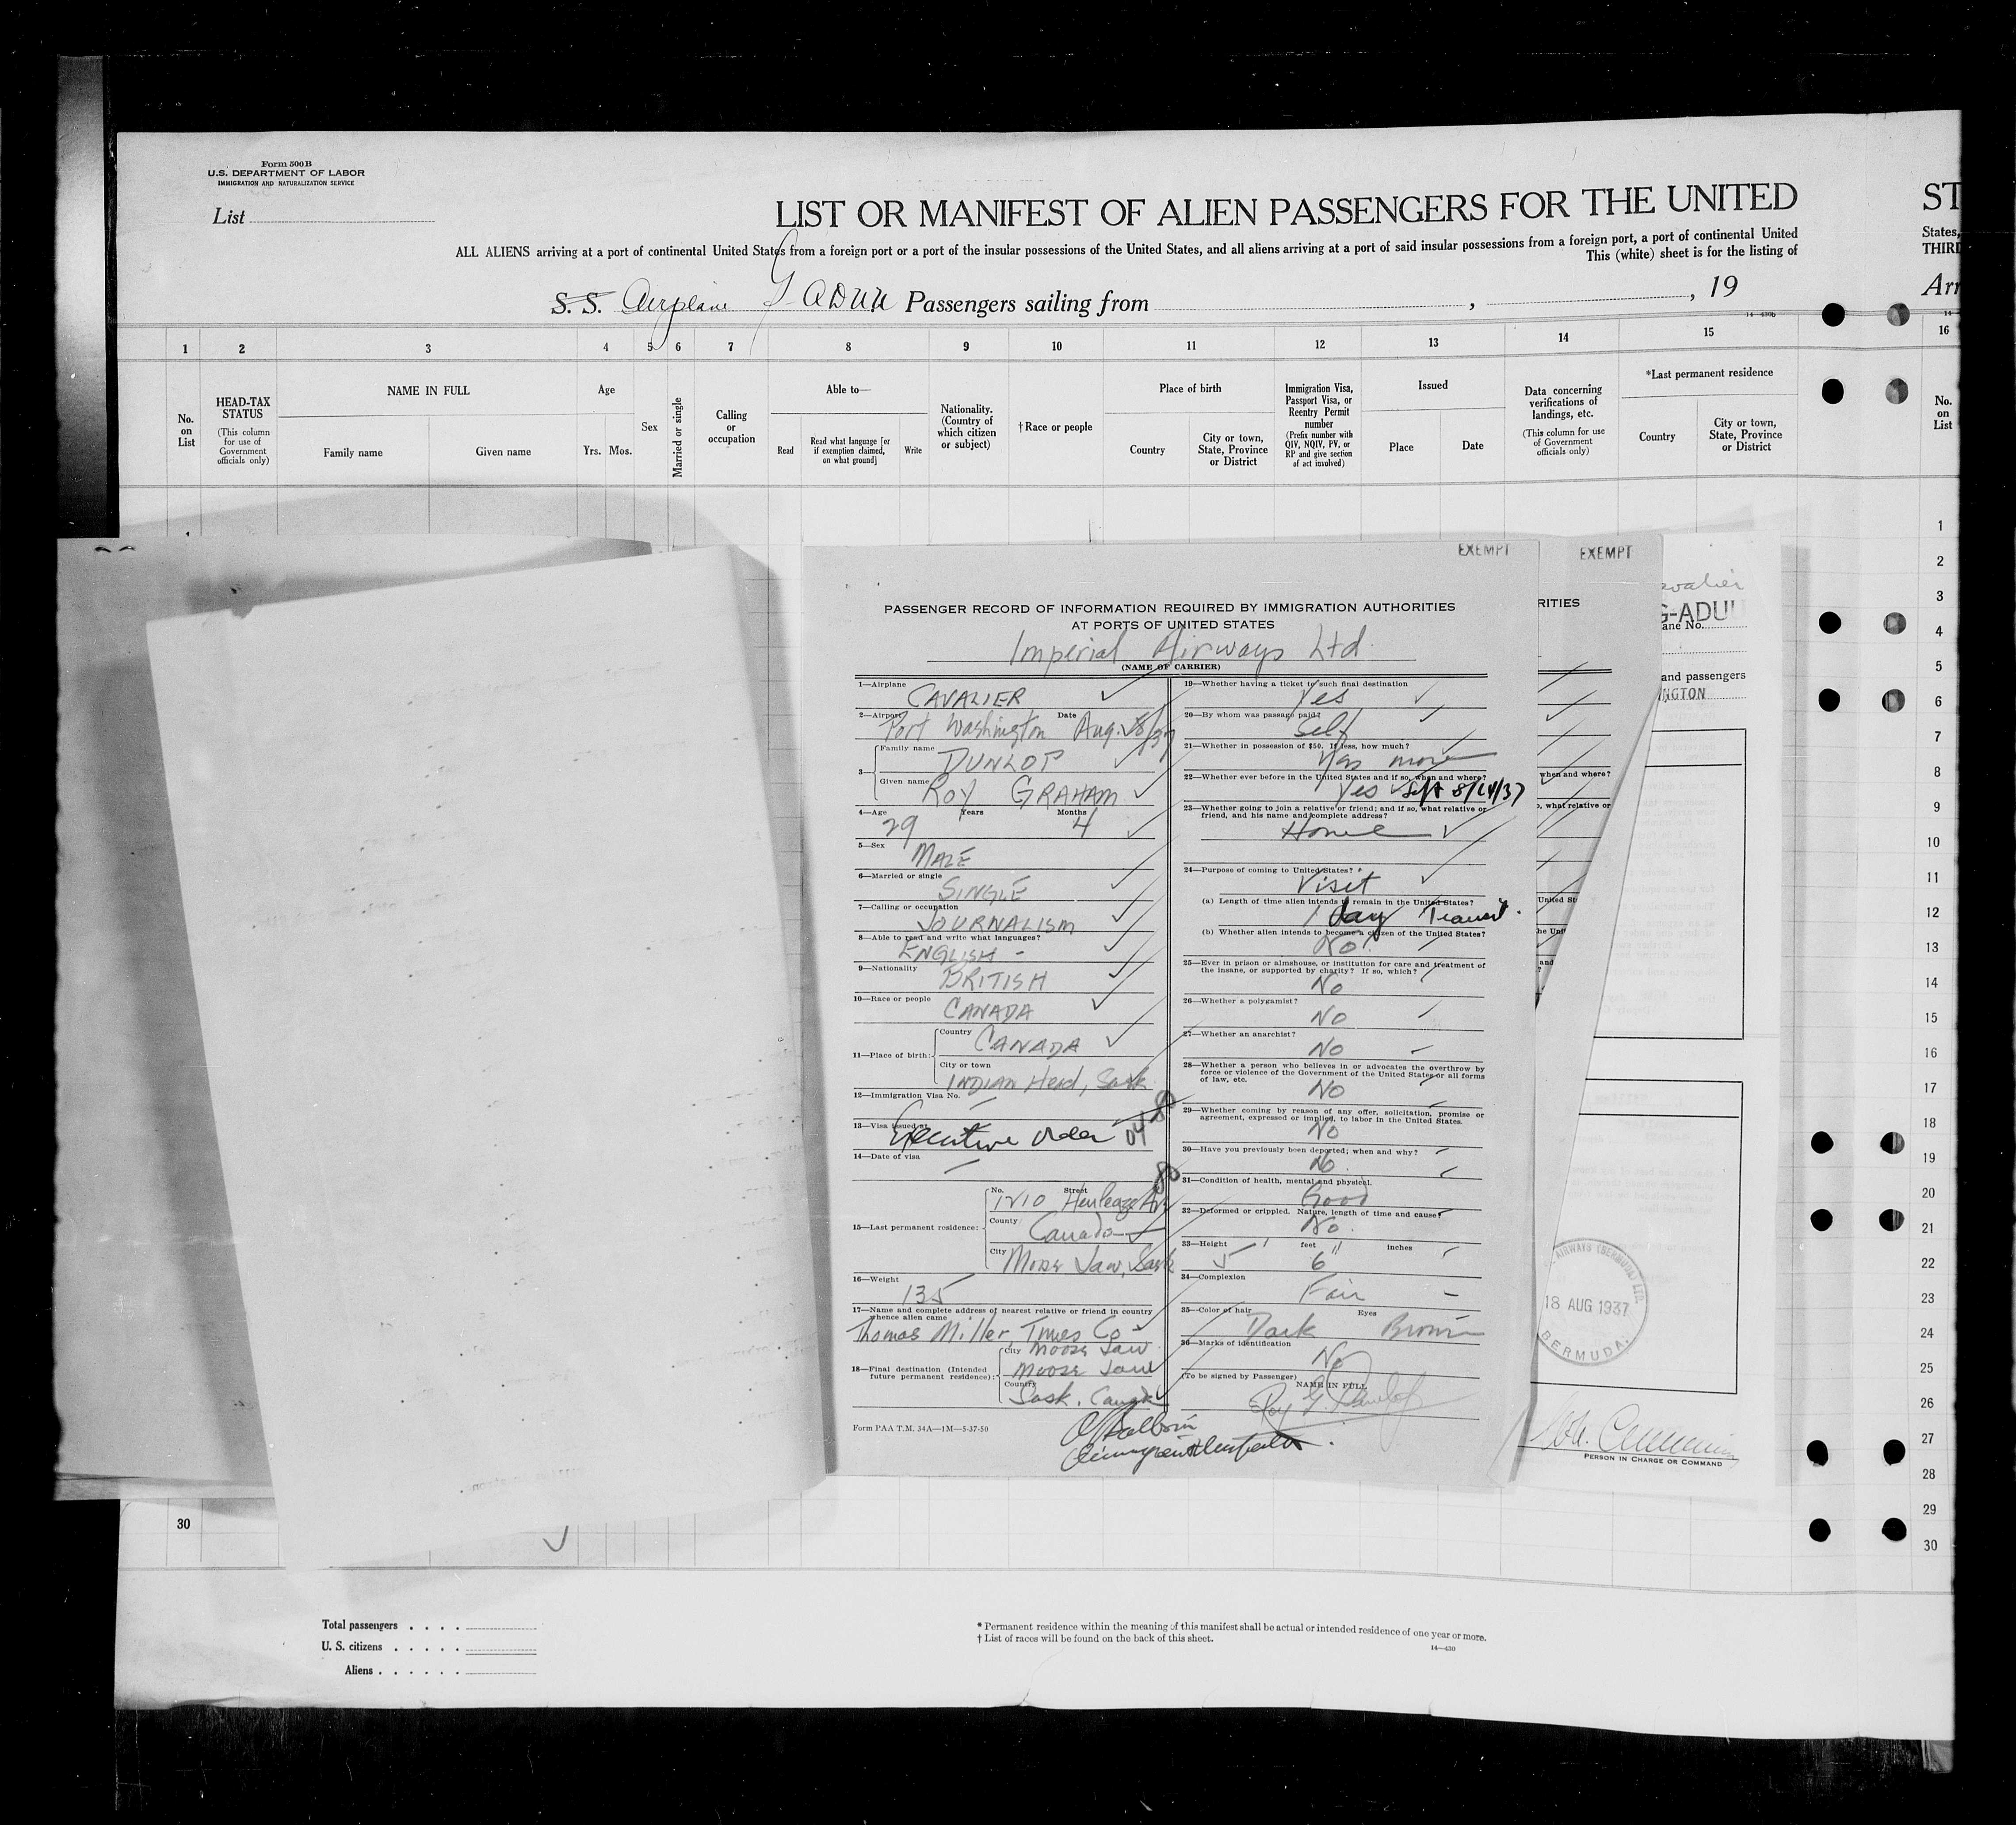 Form 500B
U.S. DEPARTMENT OF LABOR
IMMIGRATION AND NATURALIZATION SERVICE
List
LIST OR MANIFEST OF ALIEN PASSENGERS FOR THE UNITED
ST
ALL ALIENS arriving at a port of continental United States from a foreign port or a port of the insular possessions of the United States, and all aliens arriving at a port of said insular possessions from a foreign port, a port of continental United
States,
This (white) sheet is for the listing of
THIRD
S. S. Airplane G-ADUU Passengers sailing from , , 19
Arr
14—430b
1 2 3 4 5 6 7 8 9 10 11 12 13 14 15 16
No. on List
HEAD-TAX STATUS
(This column for use of Government officials only)
NAME IN FULL
Family name
Given name
Age
Yrs. Mos.
Sex
Married or single
Calling or occupation
Able to—
Read
Read what language [or if exemption claimed, on what ground]
Write
Nationality. (Country of which citizen or subject)
†Race or people
Place of birth
Country
City or town, State, Province or District
Immigration Visa, Passport Visa, or Reentry Permit number
(Prefix number with QIV, NQIV, PV, or RP and give section of act involved)
Issued
Place
Date
Data concerning verifications of landings, etc.
(This column for use of Government officials only)
*Last permanent residence
Country
City or town, State, Province or District
No. on List
EXEMPT
EXEMPT
PASSENGER RECORD OF INFORMATION REQUIRED BY IMMIGRATION AUTHORITIES
AT PORTS OF UNITED STATES
Imperial Airways Ltd.
(NAME OF CARRIER)
1—Airplane CAVALIER
2—Airport Port Washington Date Aug. 18/37
3—
Family name DUNLOP
Given name ROY GRAHAM
4—Age 29 Years 4 Months
5—Sex MALE
6—Married or single SINGLE
7—Calling or occupation JOURNALISM
8—Able to read and write what languages? ENGLISH -
9—Nationality BRITISH
10—Race or people CANADA
11—Place of birth:
Country CANADA
City or town INDIAN Head, Sask
12—Immigration Visa No. —
13—Visa issued at Executive Order
14—Date of visa —
15—Last permanent residence:
No. 1210 Street
County Canada
City Moose Jaw, Sask
16—Weight 135
17—Name and complete address of nearest relative or friend in country whence alien came
Thomas Miller, Times Co
Moose Jaw
18—Final destination (Intended future permanent residence):
City Moose Jaw
Country Sask. Canada
Form PAA T.M. 34A—1M—5-37-50
19—Whether having a ticket to such final destination Yes
20—By whom was passage paid? Self
21—Whether in possession of $50. If less, how much? Yes more
22—Whether ever before in the United States and if so, when and where?
Yes
23—Whether going to join a relative or friend; and if so, what relative or friend, and his name and complete address?
Home
24—Purpose of coming to United States? Visit
(a) Length of time alien intends to remain in the United States?
1 day Transit.
(b) Whether alien intends to become a citizen of the United States?
No.
25—Ever in prison or almshouse, or institution for care and treatment of the insane, or supported by charity? If so, which?
No
26—Whether a polygamist?
No
27—Whether an anarchist?
No
28—Whether a person who believes in or advocates the overthrow by force or violence of the Government of the United States or all forms of law, etc.
No
29—Whether coming by reason of any offer, solicitation, promise or agreement, expressed or implied, to labor in the United States.
No
30—Have you previously been deported; when and why?
No.
31—Condition of health, mental and physical.
Good
32—Deformed or crippled. Nature, length of time and cause?
No.
33—Height 5 feet 6 inches
34—Complexion Fair
35—Color of hair Dark Eyes Brown
36—Marks of identification
No
(To be signed by Passenger)
NAME IN FULL
Roy G. Dunlop
RITIES
when and where?
, what relative or
United St
he Unit
and
?
avalier
G-ADUU
ane No.
and passengers
INGTON
AIRWAYS (BERMUDA) LTD.
18 AUG 1937
BERMUDA.
PERSON IN CHARGE OR COMMAND
1
2
3
4
5
6
7
8
9
10
11
12
13
14
15
16
17
18
19
20
21
22
23
24
25
26
27
28
29
30
30
Total passengers . . . .
U. S. citizens . . . . .
Aliens . . . . . .
* Permanent residence within the meaning of this manifest shall be actual or intended residence of one year or more.
† List of races will be found on the back of this sheet.
14—430